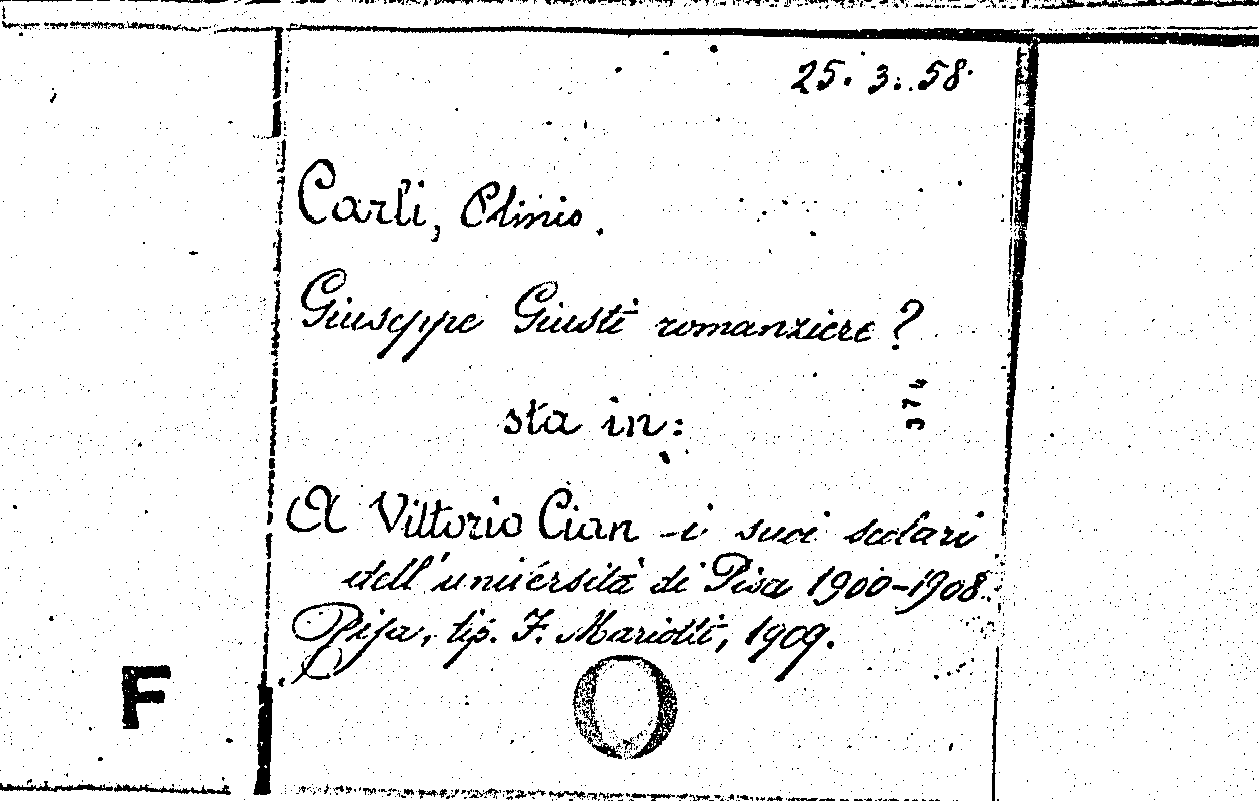 25. 3. 58.
Carli, Plinio.
Giuseppe Giusti romanziere?
374
sta in:
A Vittorio Cian - i suoi scolari
dell'università di Pisa 1900-1908.
Pisa, tip. F. Mariotti, 1909.
F